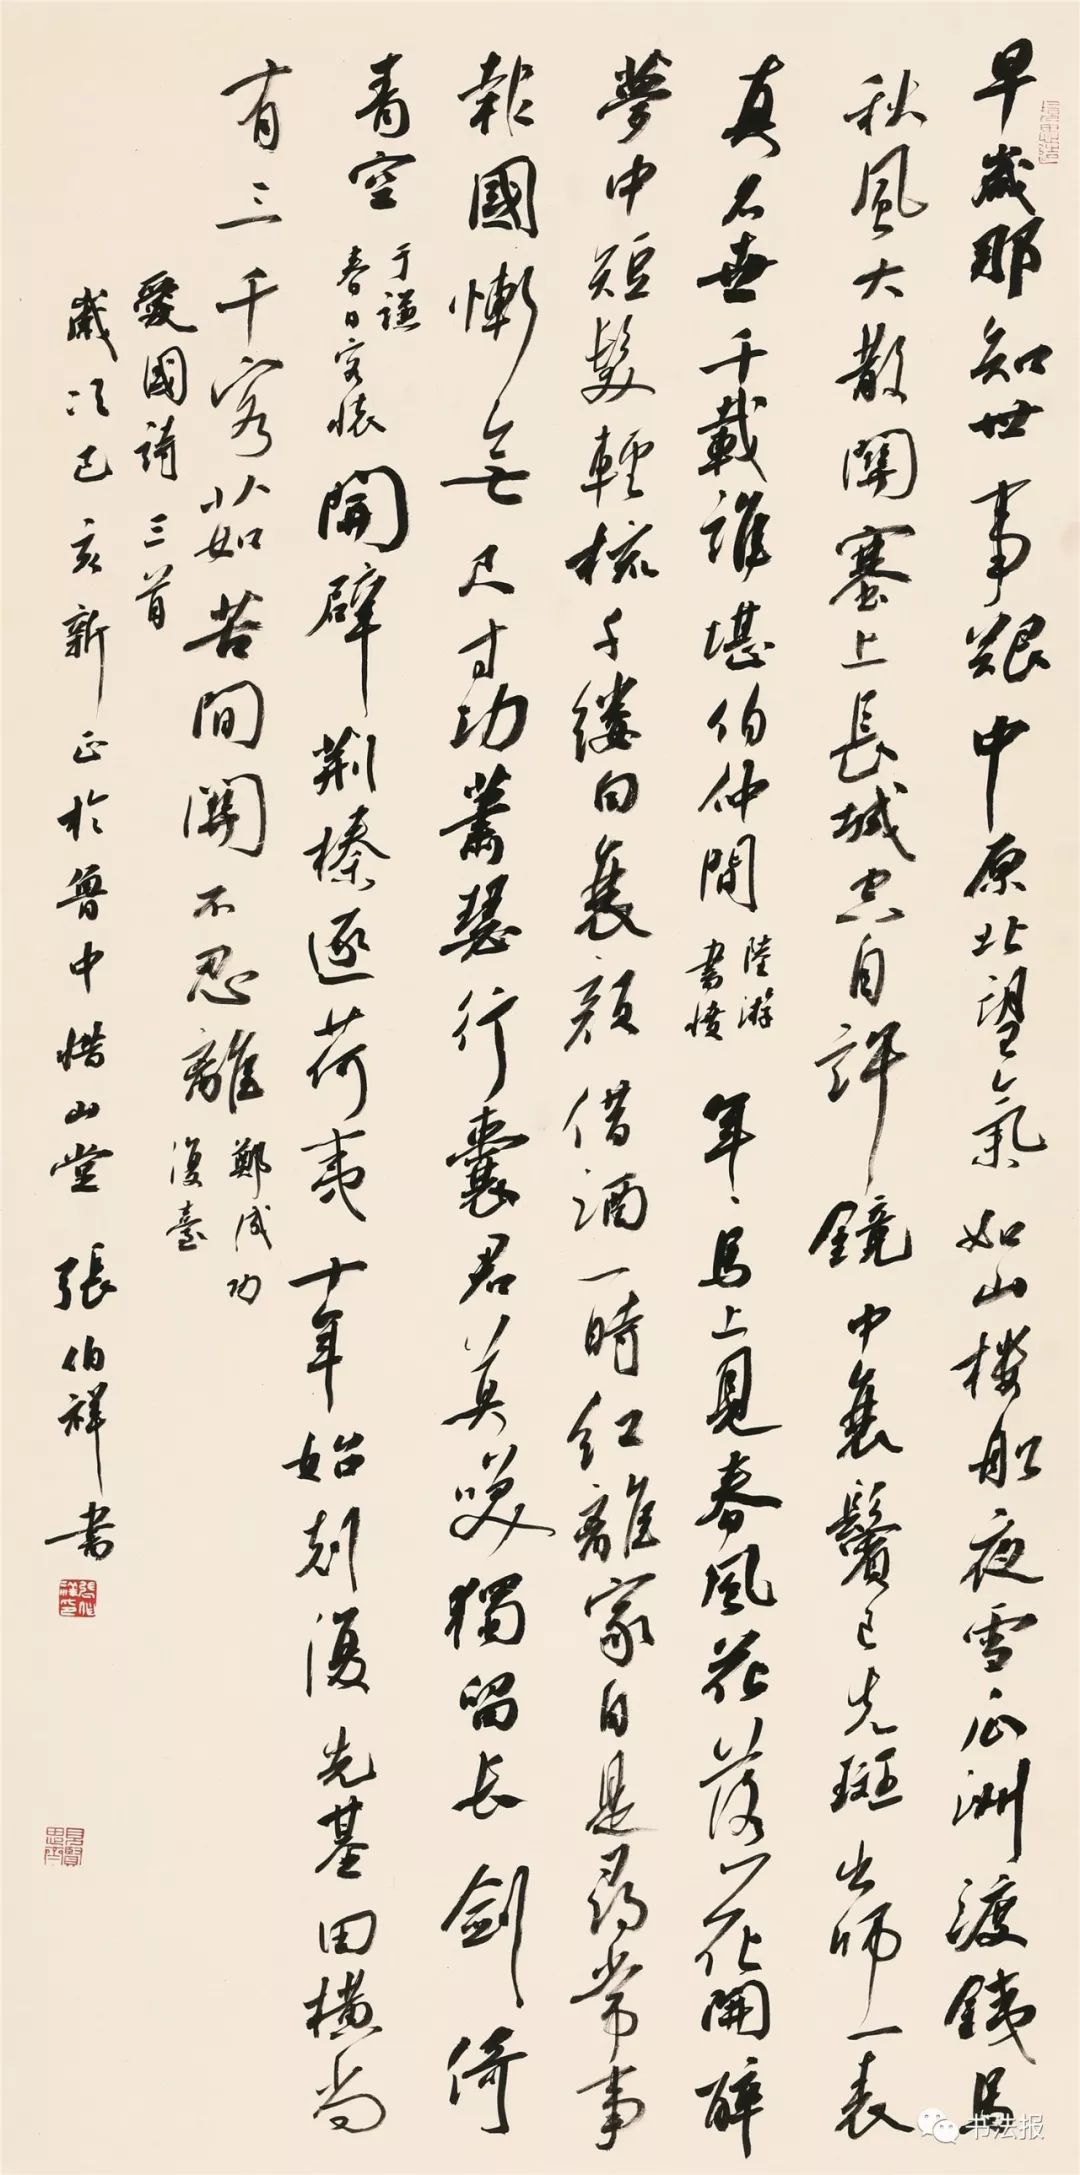 早歲那知世事艱中原北望氣如山樓船夜雪瓜洲渡銕馬
秋風大散關塞上長城空自許鏡中衰鬢已先斑出師一表
真名世千載誰堪伯仲間
陸游
書憤
年々馬上見春風花落花開醉
夢中短髮輕梳千縷白衰顏借酒一時紅離家自是尋常事
報國慚無尺寸功蕭瑟行囊君莫咲獨留長劍倚
青空
于謙
春日客懷
開闢荆榛逐荷夷十年始剋復先基田橫尚
有三千客茹苦間關不忍離
鄭成功
復臺
愛國詩三首
歲次己亥新正於魯中惜山堂張伯祥書
張伯祥印
見賢思齊
书法报